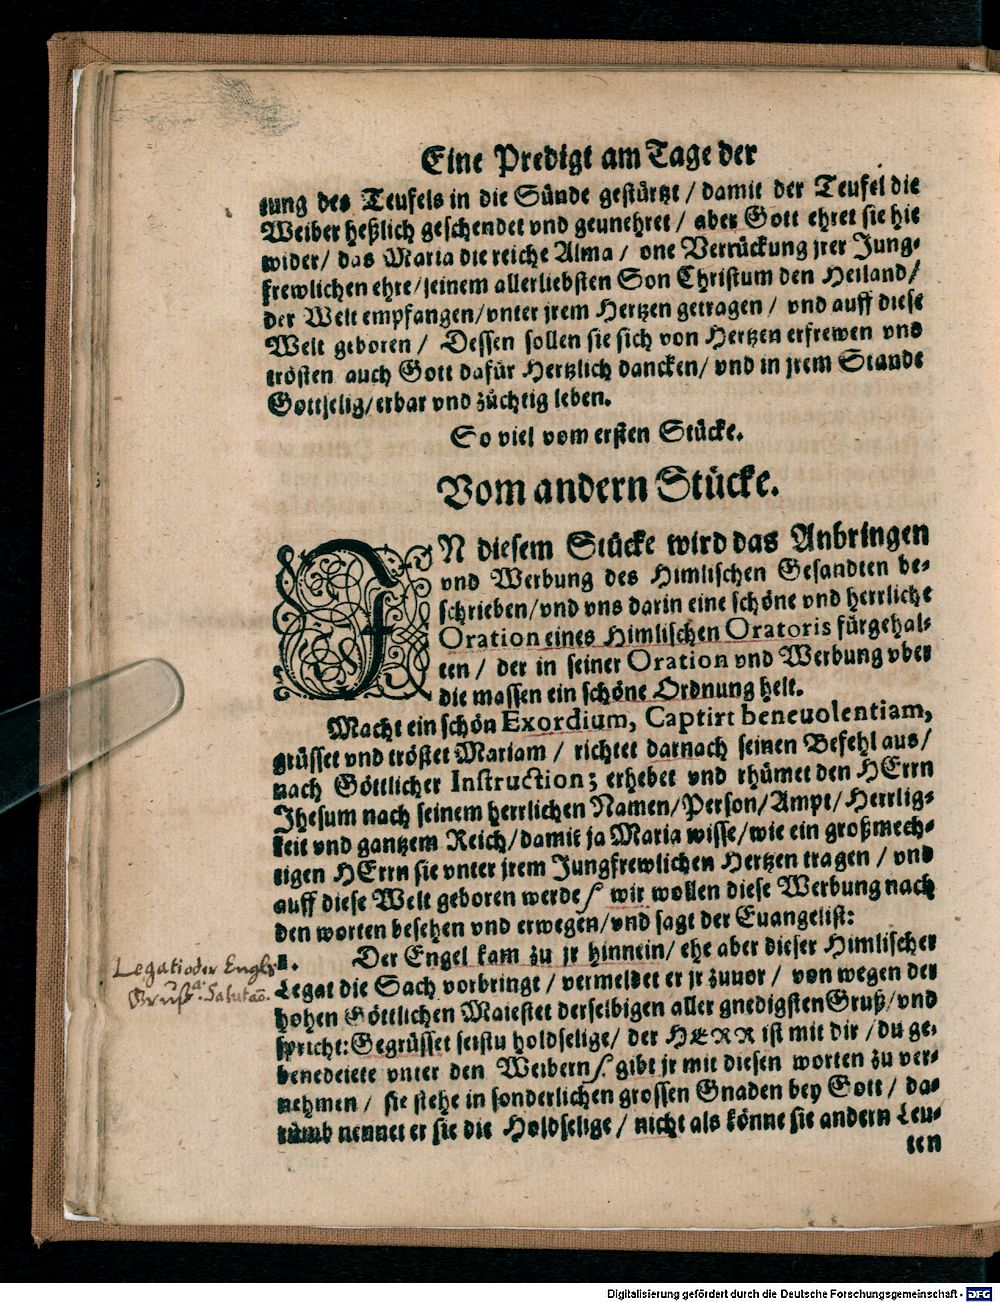 Eine Predigt am Tage der
tung des Teufels in die Sünde gestürtzt / damit der Teufel die
Weiber heßlich geschendet vnd geunehret / aber Gott ehret sie hie
wider / das Maria die reiche Alma / one Verrückung jrer Jung-
frewlichen ehre / seinem allerliebsten Son Christum den Heiland /
der Welt empfangen / vnter jrem Hertzen getragen / vnd auff diese
Welt geboren / Dessen sollen sie sich von Hertzen erfrewen vnd
trösten auch Gott dafür Hertzlich dancken / vnd in jrem Stande
Gottselig / erbar vnd züchtig leben.
So viel vom ersten Stücke.
Vom andern Stücke.
IN diesem Stücke wird das Anbringen
vnd Werbung des Himlischen Gesandten be-
schrieben / vnd vns darin eine schöne vnd herrliche
Oration eines Himlischen Oratoris fürgehal-
ten / der in seiner Oration vnd Werbung vber
die massen ein schöne Ordnung helt.
Macht ein schön Exordium, Captirt beneuolentiam,
grüsset vnd tröstet Mariam / richtet darnach seinen Befehl aus /
nach Göttlicher Instruction; erhebet vnd rhümet den HErrn
Jhesum nach seinem herrlichen Namen / Person / Ampt / Herrlig-
keit vnd gantzem Reich / damit ja Maria wisse / wie ein großmech-
tigen HErrn sie vnter jrem Jungfrewlichen Hertzen tragen / vnd
auff diese Welt geboren werde / wir wollen diese Werbung nach
den worten besehen vnd erwegen / vnd sagt der Euangelist:
1. Der Engel kam zu jr hinnein / ehe aber dieser Himlischer
Legat die Sach vorbringt / vermeldet er jr zuuor / von wegen der
hohen Göttlichen Maiestet derselbigen aller gnedigsten Gruß / vnd
spricht: Gegrüsset seistu holdselige / der HERR ist mit dir / du ge-
benedeiete vnter den Weibern / gibt jr mit diesen worten zu ver-
nehmen / sie stehe in sonderlichen grossen Gnaden bey Gott / da-
rümb nennet er sie die Holdselige / nicht als könne sie andern Leu-
ten
Legati oder Engls
Gruß a. Salutaõ.
Digitalisierung gefördert durch die Deutsche Forschungsgemeinschaft - DFG